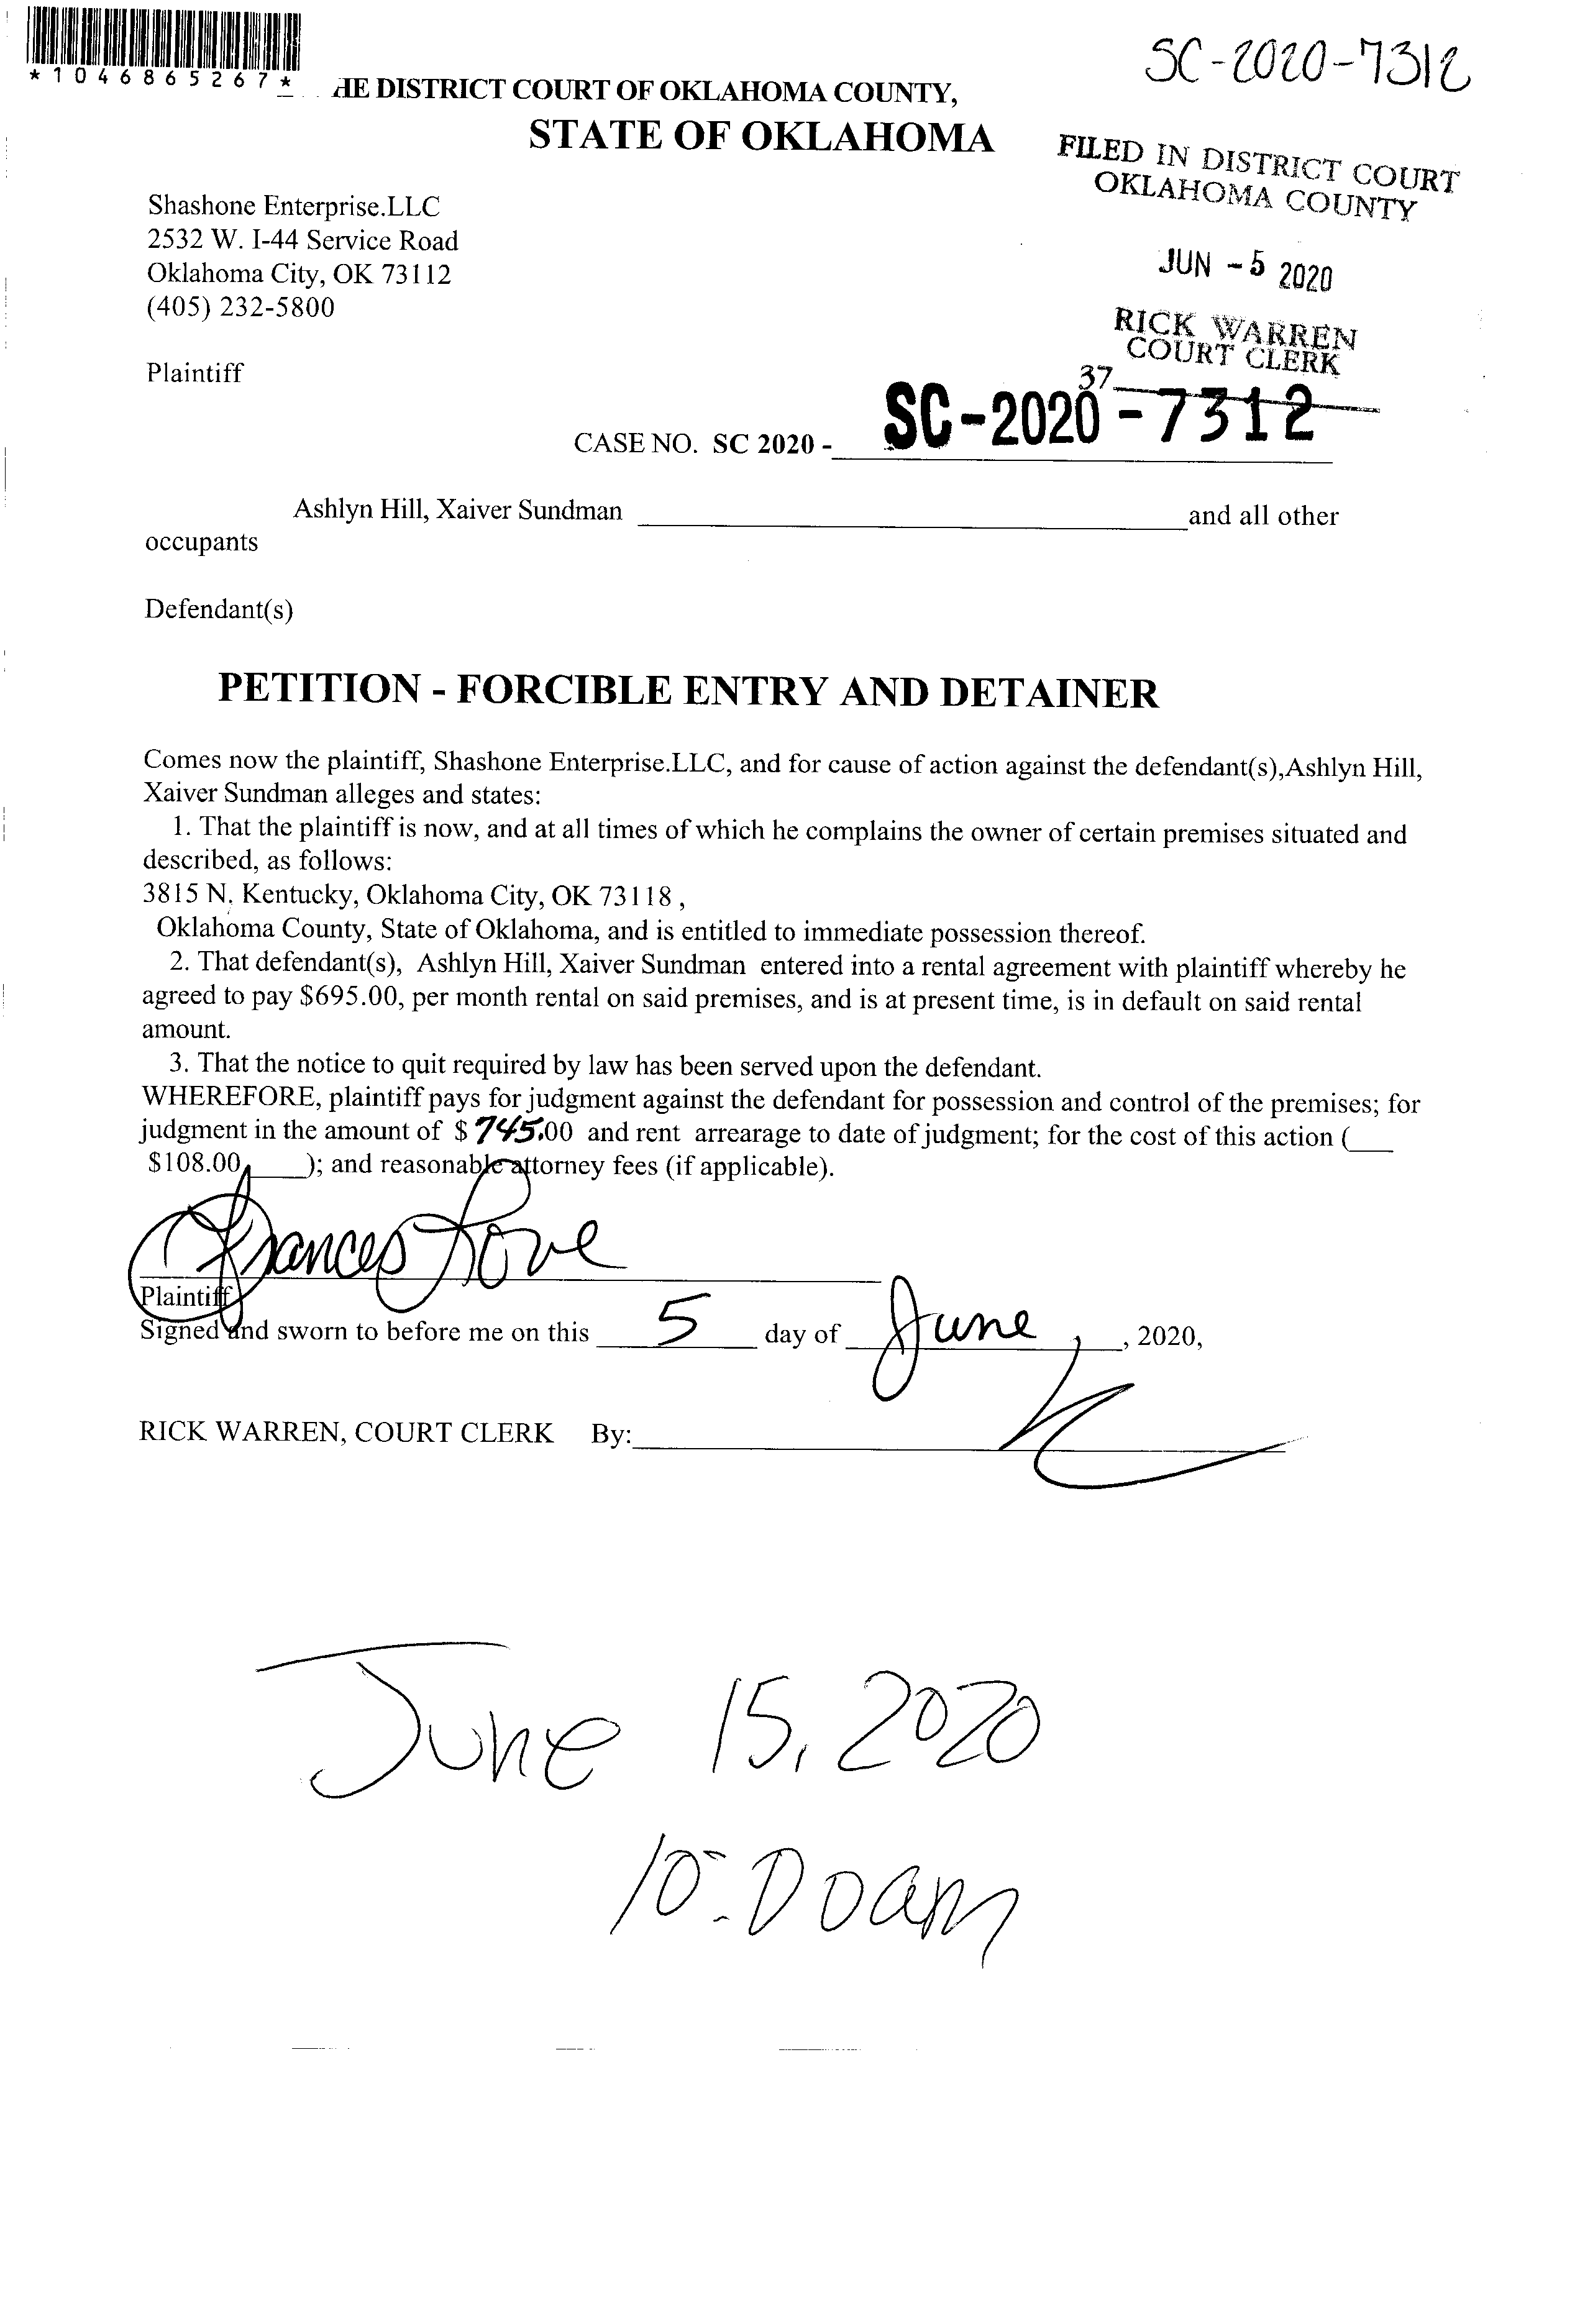 *1046865267*
HE DISTRICT COURT OF OKLAHOMA COUNTY,
STATE OF OKLAHOMA
SC-2020-7312
FILED IN DISTRICT COURT
OKLAHOMA COUNTY
JUN -5 2020
RICK WARREN
COURT CLERK
37
Shashone Enterprise.LLC
2532 W. I-44 Service Road
Oklahoma City, OK 73112
(405) 232-5800
Plaintiff
CASE NO. SC 2020 - SC-2020-7312
Ashlyn Hill, Xaiver Sundman and all other
occupants
Defendant(s)
PETITION - FORCIBLE ENTRY AND DETAINER
Comes now the plaintiff, Shashone Enterprise.LLC, and for cause of action against the defendant(s),Ashlyn Hill,
Xaiver Sundman alleges and states:
1. That the plaintiff is now, and at all times of which he complains the owner of certain premises situated and
described, as follows:
3815 N. Kentucky, Oklahoma City, OK 73118 ,
Oklahoma County, State of Oklahoma, and is entitled to immediate possession thereof.
2. That defendant(s), Ashlyn Hill, Xaiver Sundman entered into a rental agreement with plaintiff whereby he
agreed to pay $695.00, per month rental on said premises, and is at present time, is in default on said rental
amount.
3. That the notice to quit required by law has been served upon the defendant.
WHEREFORE, plaintiff pays for judgment against the defendant for possession and control of the premises; for
judgment in the amount of $ 745.00 and rent arrearage to date of judgment; for the cost of this action (___
$108.00 ____); and reasonable attorney fees (if applicable).
Frances Love
Plaintiff
Signed and sworn to before me on this 5 day of June, 2020,
RICK WARREN, COURT CLERK By:
June 15, 2020
10:00am